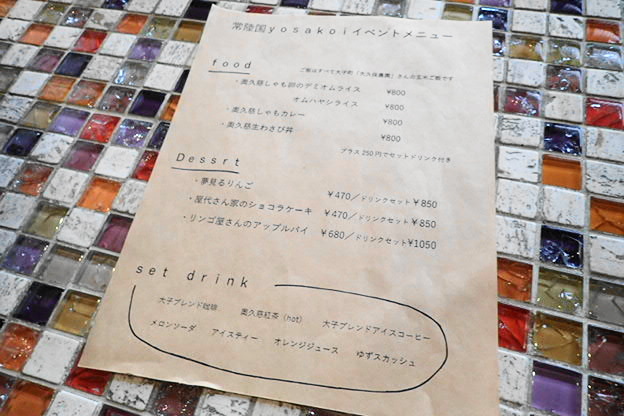 常陸国yosakoiイベントメニュー
food
ご飯はすべて大子町「大久保農園」さんの玄米ご飯です
・奥久慈しゃも卵のデミオムライス ¥800
オムハヤシライス ¥800
・奥久慈しゃもカレー ¥800
・奥久慈生わさび丼 ¥800
プラス250円でセットドリンク付き
Dessrt
・夢見るりんご ¥470/ドリンクセット¥850
・屋代さん家のショコラケーキ ¥470/ドリンクセット¥850
・リンゴ屋さんのアップルパイ ¥680/ドリンクセット¥1050
set drink
大子ブレンド珈琲 奥久慈紅茶（hot） 大子ブレンドアイスコーヒー
メロンソーダ アイスティー オレンジジュース ゆずスカッシュ